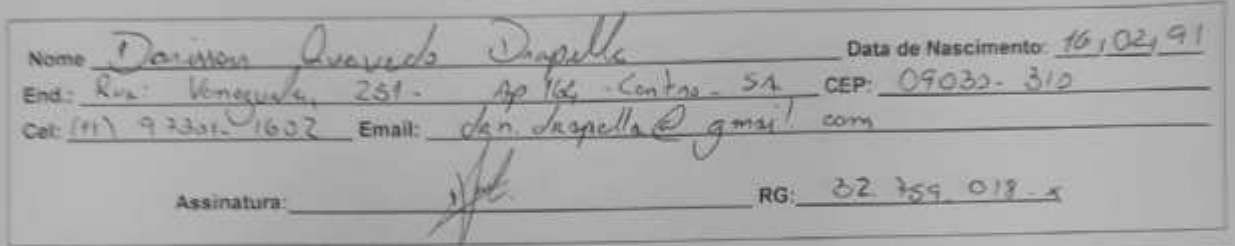 Nome Danisson Quevedo Drapella Data de Nascimento: 16,02,91
End.: Rua: Venezuela, 251 - Ap 164 - Centro - SA CEP: 09030-310
Cel: (11) 97301-1602 Email: dan.drapella@gmail.com
Assinatura: RG: 32.759.018-x